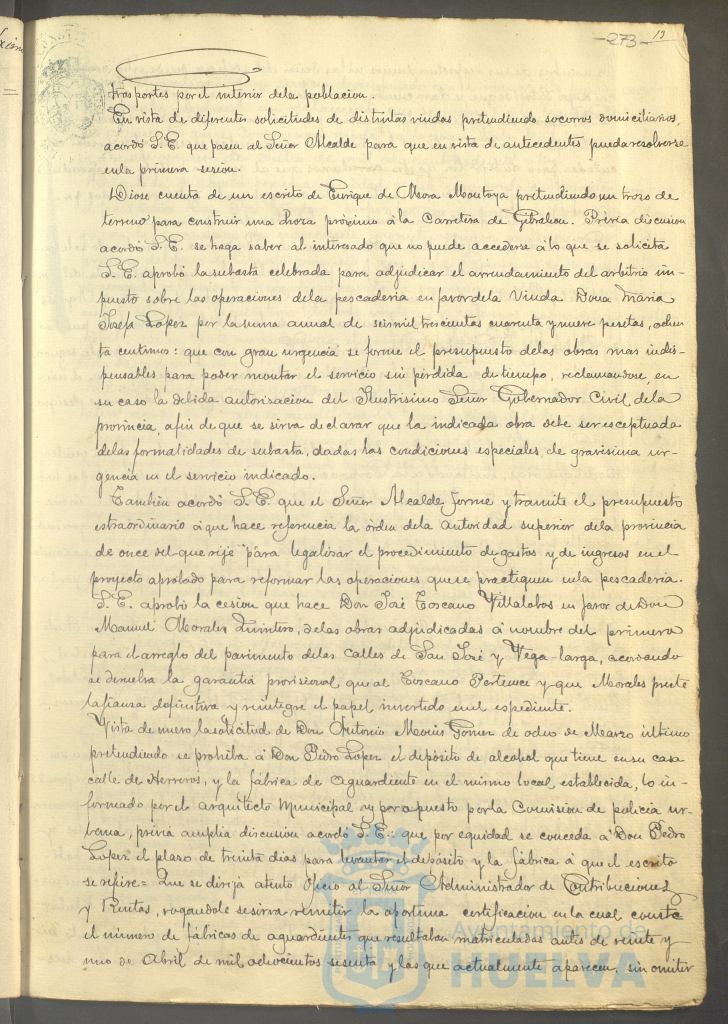 -273- 13
trasportes por el interior dela poblacion.
En vista de diferentes solicitudes de distintas viudas pretendiendo socorros domiciliarios,
acordó S.E. que pasen al Señor Alcalde para que en vista de antecedentes pueda resolverse
en la primera sesion.
Diose cuenta de un escrito de Enrique de Mora Montoya pretendiendo un trozo de
terreno para construir una Choza próximo á la Carretera de Gibraleon. Prévia discusion
acordó S.E. se haga saber al interesado que no puede accederse á lo que se solicita
S.E. aprobó la subasta celebrada para adjudicar el arrendamiento del arbitrio im-
puesto sobre las operaciones dela pescaderia en favor dela Viuda Doña Maria
Josefa Lopez por la suma anual de seis mil trescientas cuarenta y nueve pesetas, ochen
ta centimos: que con gran urgencia se forme el presupuesto delas obras mas indis-
pensables para poder montar el servicio sin pérdida de tiempo, reclamandose, en
su caso la debida autorizacion del Ilustrisimo Señor Gobernador Civil, dela
provincia, afin de que se sirva declarar que la indicada obra debe ser esceptuada
delas formalidades de subasta, dadas las condiciones especiales, de gravisima ur-
gencia en el servicio indicado.
Tambien acordó S.E. que el Señor Alcalde forme y tramite el presupuesto
estraordinario á que hace referencia la órden dela autoridad superior dela provincia
de once del que rije para legalizar el procedimiento de gastos y de ingresos en el
proyecto aprobado para reformar las operaciones que se practiquen en la pescaderia.
S.E. aprobó la cesion que hace Don José Toscano Villalobos en favor de Don
Manuel Morales Quintero, delas obras adjudicadas á nombre del primero
para el arreglo del pavimento delas Calles de San José y Vega-larga, acordando
se devuelva la garantia provisional que al Toscano Pertenece y que Morales preste
la fianza definitiva y reintegre el papel invertido en el espediente.
Vista de nuevo la solicitud de Don Antonio Gomez de ocho de Marzo último
pretendiendo se prohiba á Don Pedro Lopez el depósito de alcohol que tiene en su casa
calle de Herreros, y la fábrica de Aguardiente en el mismo local, establecida, lo in-
formado por el arquitecto Municipal y propuesto por la Comision de policia ur-
bana, prévia amplia discusion acordó S.E.: que por equidad se conceda á Don Pedro
Lopez el plazo de treinta dias para levantar el depósito y la fábrica á que el escrito
se refiere= Que se dirija atento oficio al Señor Administrador de Contribuciones
y Rentas, rogandole se sirva remitir la oportuna certificacion en la cual conste
el número de fábricas de aguardientes que resultaban matriculadas antes de veinte y
uno de Abril de mil ochocientos sesenta y las que actualmente aparecen, sin omitir
Ayuntamiento de
HUELVA